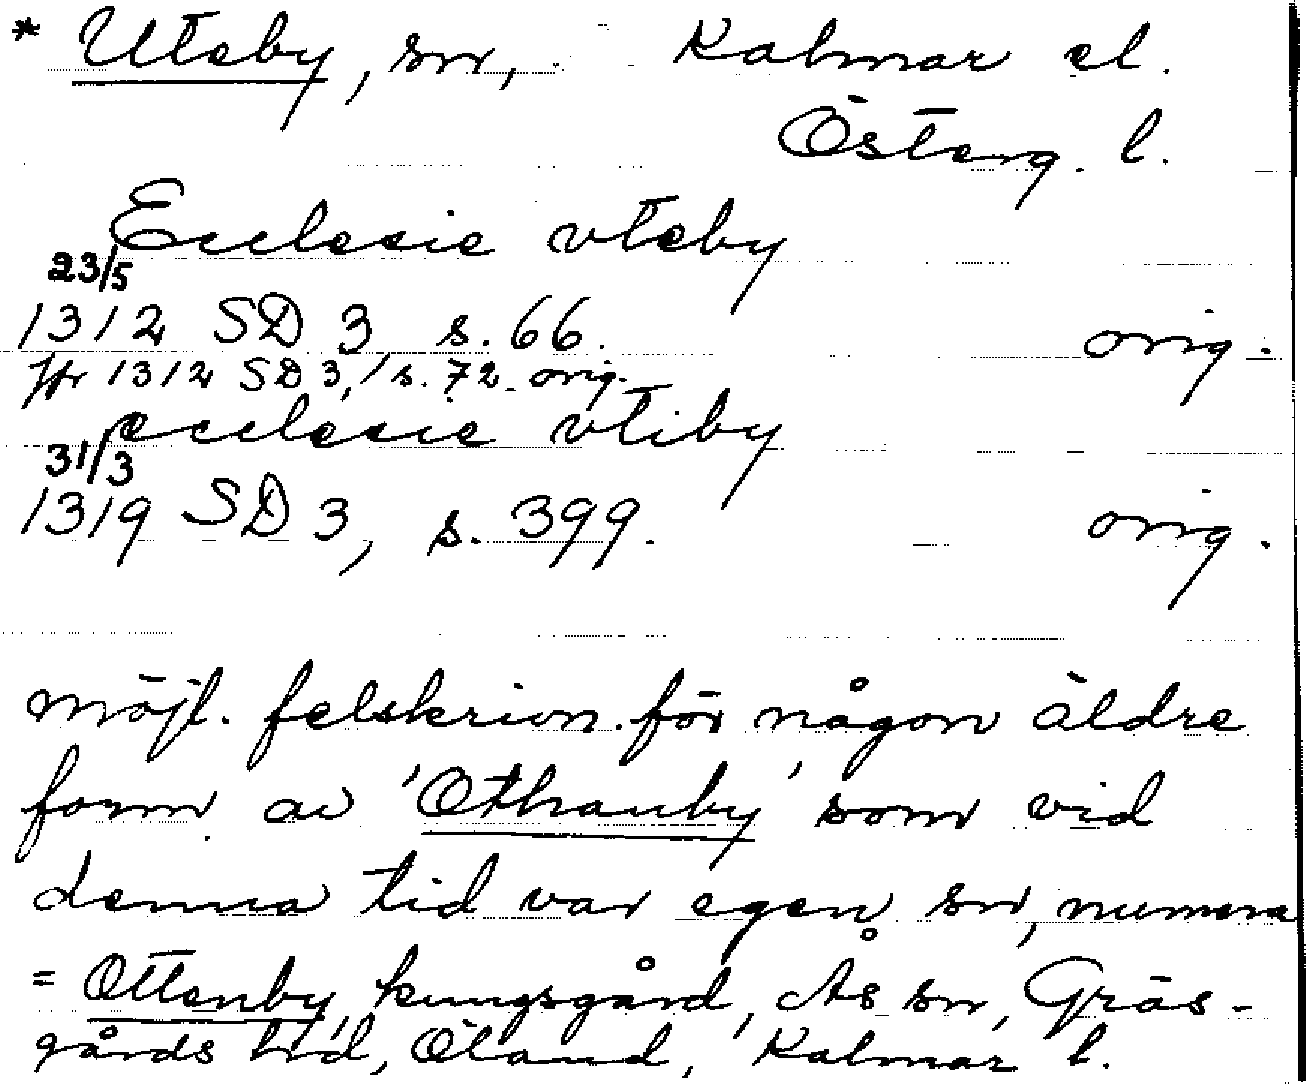 * Uteby, sn, Kalmar el.
Österg. l.
Ecclesie vteby
23/5
1312 SD 3 s. 66. orig.
Jfr 1312 SD 3,1 s. 72. orig.
ecclesie vtiby
31/3
1319 SD 3, s. 399. orig.
möjl. felskrivn. för någon äldre
form av 'Othanby' som vid
denna tid var egen sn, numera
= Ottenby, kungsgård, Ås sn, Gräs-
gårds hd, Öland, Kalmar l.